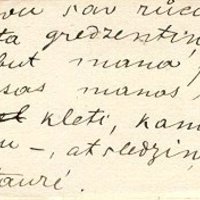 sav rūc
ta gredzentiņ
but mana
sas manas
kleti, kam
u -, atslēdziņ
tauri.